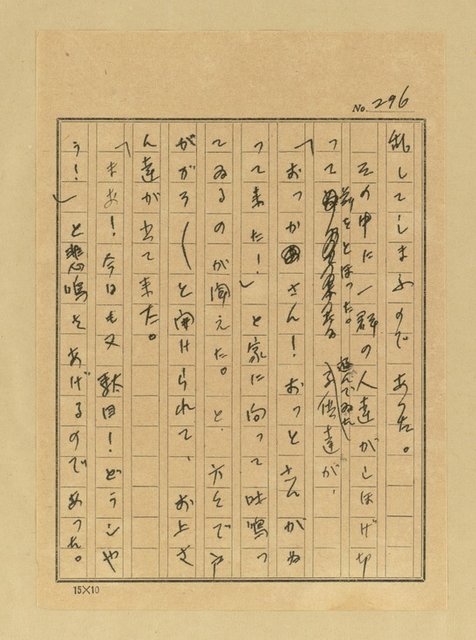 No. 296
乱してしまふのであつた。
その中に一群の人達がしほげ切
って 前をとほつた。 遊んでゐた子供達が、
「おっかさん! おっとさんがゐ
って来た!」と家に向って叫鳴っ
てゐるのが聞えた。と、方々で戸
ががら〱と開けられて、お上さ
ん達が出て来た。
「まあ! 今日も又駄目! どうシや
う!」と悲鳴をあげるのであつた。
15×10